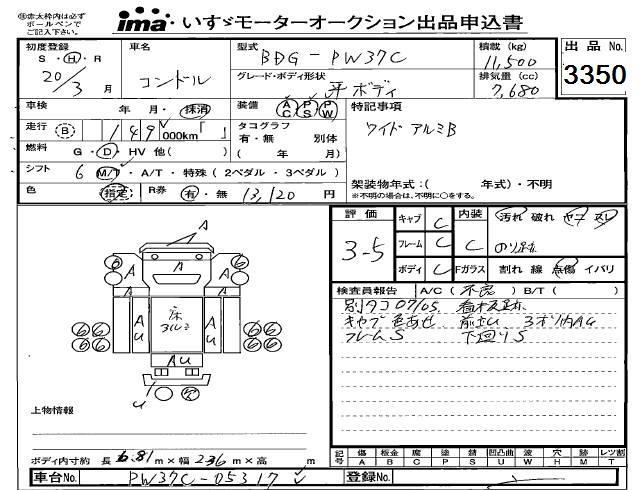 ㊟赤太枠内は必ず
ボールペンで
ご記入下さい。
ima いすゞモーターオークション出品申込書
初度登録
S・H・R
20/3 月
車名
コンドル
型式
BDG-PW37C
グレード・ボディ形状
平ボディ
積載(kg)
11,500
排気量(cc)
7,680
出品 No.
3350
車検 年 月・抹消
装備 AC PS PW
特記事項
ワイド アルミB
走行 B 149,000km「 」
タコグラフ
有・無 別体
( 年 月)
燃料 G・D・HV 他( )
シフト 6 M/T・A/T・特殊(2ペダル・3ペダル)
架装物年式:( 年式)・不明
※不明の場合は、不明に○をする。
色 指定 R券 有・無 13,120 円
評価
3-5
キャブ C
フレーム C
ボディ C
内装
C
Fガラス
汚れ 破れ ヤニ スレ
のり跡
割れ 線 点傷 イバリ
検査員報告 A/C(不良) B/T( )
別タコ07/05 看板跡
キャブ色あせ
フレームS 下回りS
A
A
A
A
A
A
U
A
U
床
アルミ
AU
U
6
6
6
6
6
6
上物情報
ボディ内寸約 長 6.81 m×幅 2.36 m×高 m
記号 傷 A 板金 B 腐 C 塗 P 錆 S 凹凸曲 U 波 W 穴 H 跡 M レツ割 T
車台No. PW37C-05317
登録No.